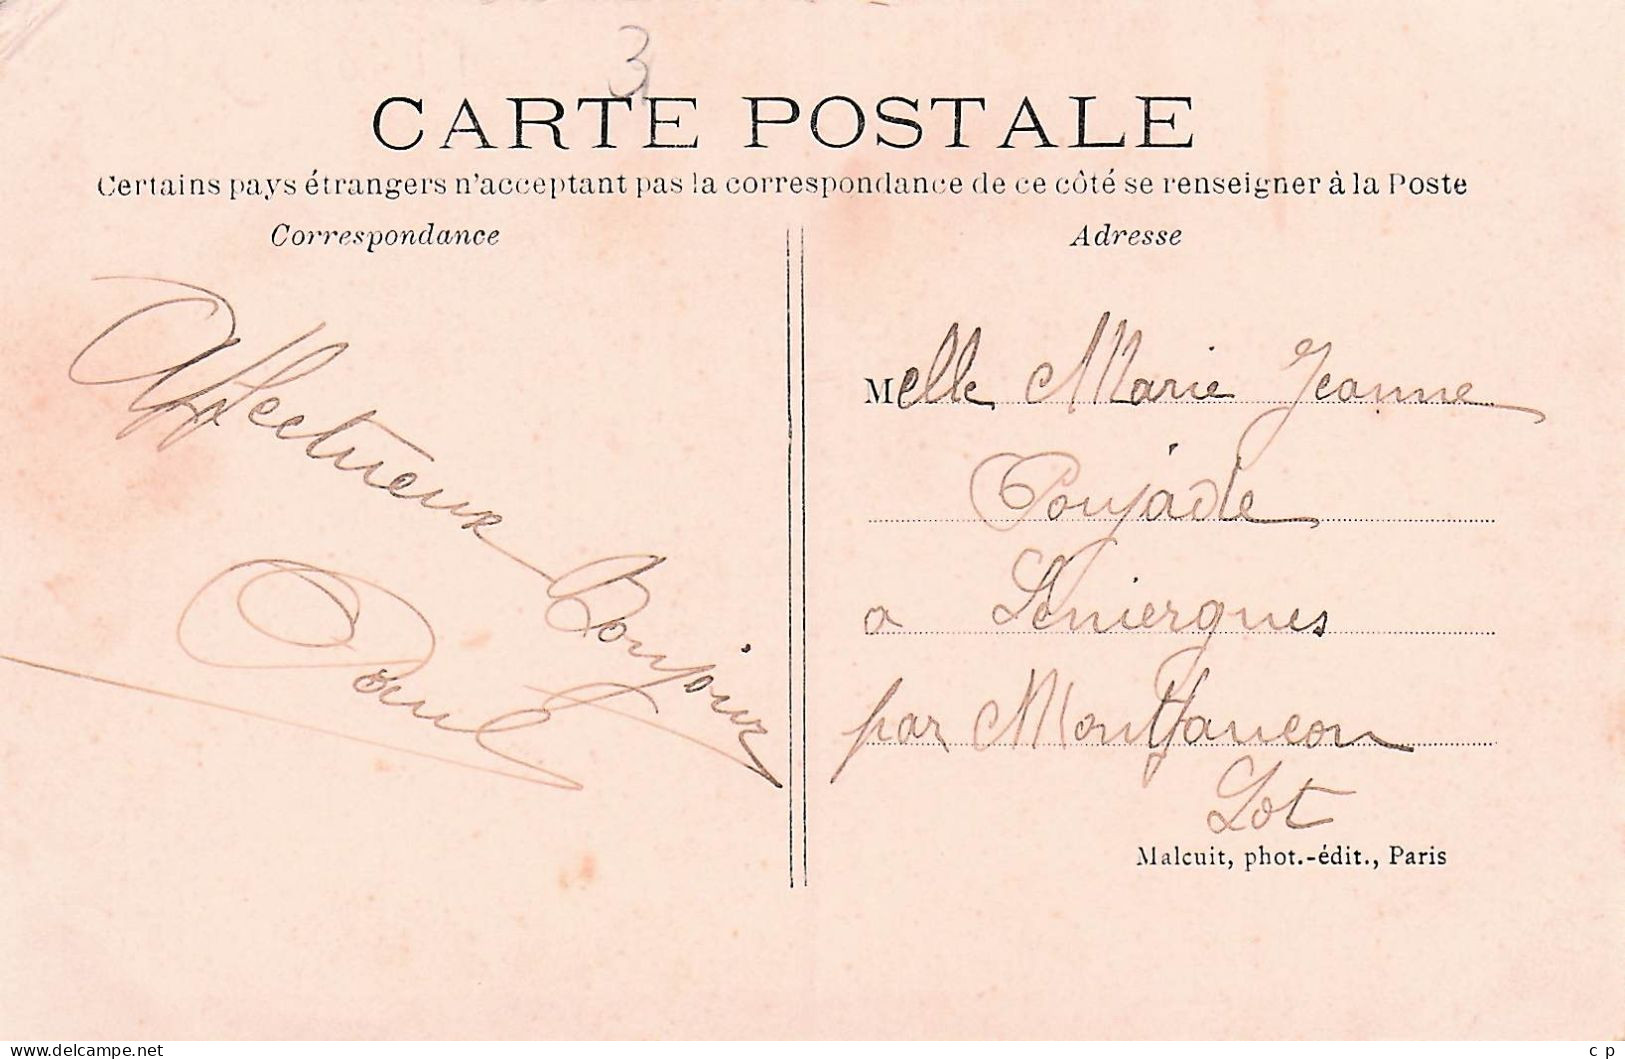 3
CARTE POSTALE
Certains pays étrangers n'acceptant pas la correspondance de ce côté se renseigner à la Poste
Correspondance
Affectueux Bonjour
Paul
Adresse
Melle Marie Jeanne
Poujade
a Séniergues
par Montfaucon
Lot
Malcuit, phot.-édit., Paris
www.delcampe.net
c p